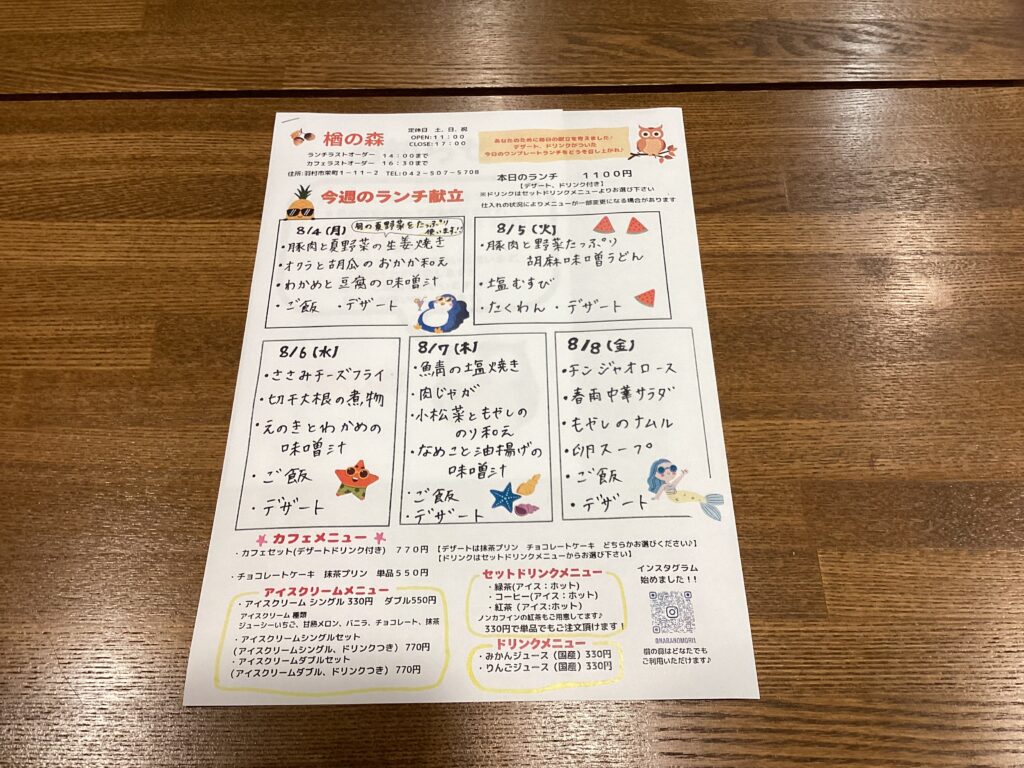 楢の森
定休日 土、日、祝
OPEN:11:00
CLOSE:17:00
ランチラストオーダー 14:00まで
カフェラストオーダー 16:30まで
住所:羽村市栄町1-11-2 TEL:042-507-5708
あなたのために毎日の献立を考えました♪
デザート、ドリンクがついた
今日のワンプレートランチをどうぞ召し上がれ♪
本日のランチ 1100円
【デザート、ドリンク付き】
※ドリンクはセットドリンクメニューよりお選び下さい
仕入れの状況によりメニューが一部変更になる場合があります
今週のランチ献立
8/4(月)
旬の夏野菜をたっぷり
使います!!
・豚肉と夏野菜の生姜焼き
・オクラと胡瓜のおかか和え
・わかめと豆腐の味噌汁
・ご飯 ・デザート
8/5(火)
・豚肉と野菜たっぷり
胡麻味噌うどん
・塩むすび
・たくわん ・デザート
8/6(水)
・ささみチーズフライ
・切干大根の煮物
・えのきとわかめの
味噌汁
・ご飯
・デザート
8/7(木)
・魚鯖の塩焼き
・肉じゃが
・小松菜ともやしの
のり和え
・なめこと油揚げの
味噌汁
・ご飯
・デザート
8/8(金)
・チンジャオロース
・春雨中華サラダ
・もやしのナムル
・卵スープ
・ご飯
・デザート
カフェメニュー
・カフェセット(デザートドリンク付き) 770円 【デザートは抹茶プリン チョコレートケーキ どちらかお選びください♪】
【ドリンクはセットドリンクメニューからお選び下さい】
・チョコレートケーキ 抹茶プリン 単品550円
アイスクリームメニュー
・アイスクリーム シングル330円 ダブル550円
アイスクリーム 種類
ジューシーいちご、甘熟メロン、バニラ、チョコレート、抹茶
・アイスクリームシングルセット
(アイスクリームシングル、ドリンクつき) 770円
・アイスクリームダブルセット
(アイスクリームダブル、ドリンクつき) 770円
セットドリンクメニュー
・緑茶(アイス:ホット)
・コーヒー(アイス:ホット)
・紅茶 (アイス:ホット)
ノンカフェインの紅茶もご用意してます♪
330円で単品でもご注文頂けます!
ドリンクメニュー
・みかんジュース (国産) 330円
・りんごジュース (国産) 330円
インスタグラム
始めました!!
@NARANOMORI1
楢の森はどなたでも
ご利用いただけます♪